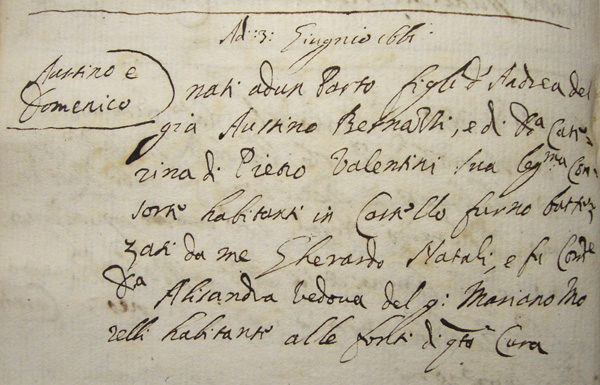 Ad: 3: Giugnio 1661
Austino e
Domenico
nati adun Parto figli d'Andrea del
gia Austino Bernardi, e di Da Cate=
rina di Pietro Valentini sua legma Con
sorte habitanti in Castello furno battez
zati da me Gherardo Natali, e fu Comre
Da Alisandra vedova del q: Mariano Mo
relli habitante alle fonti di qta Cura